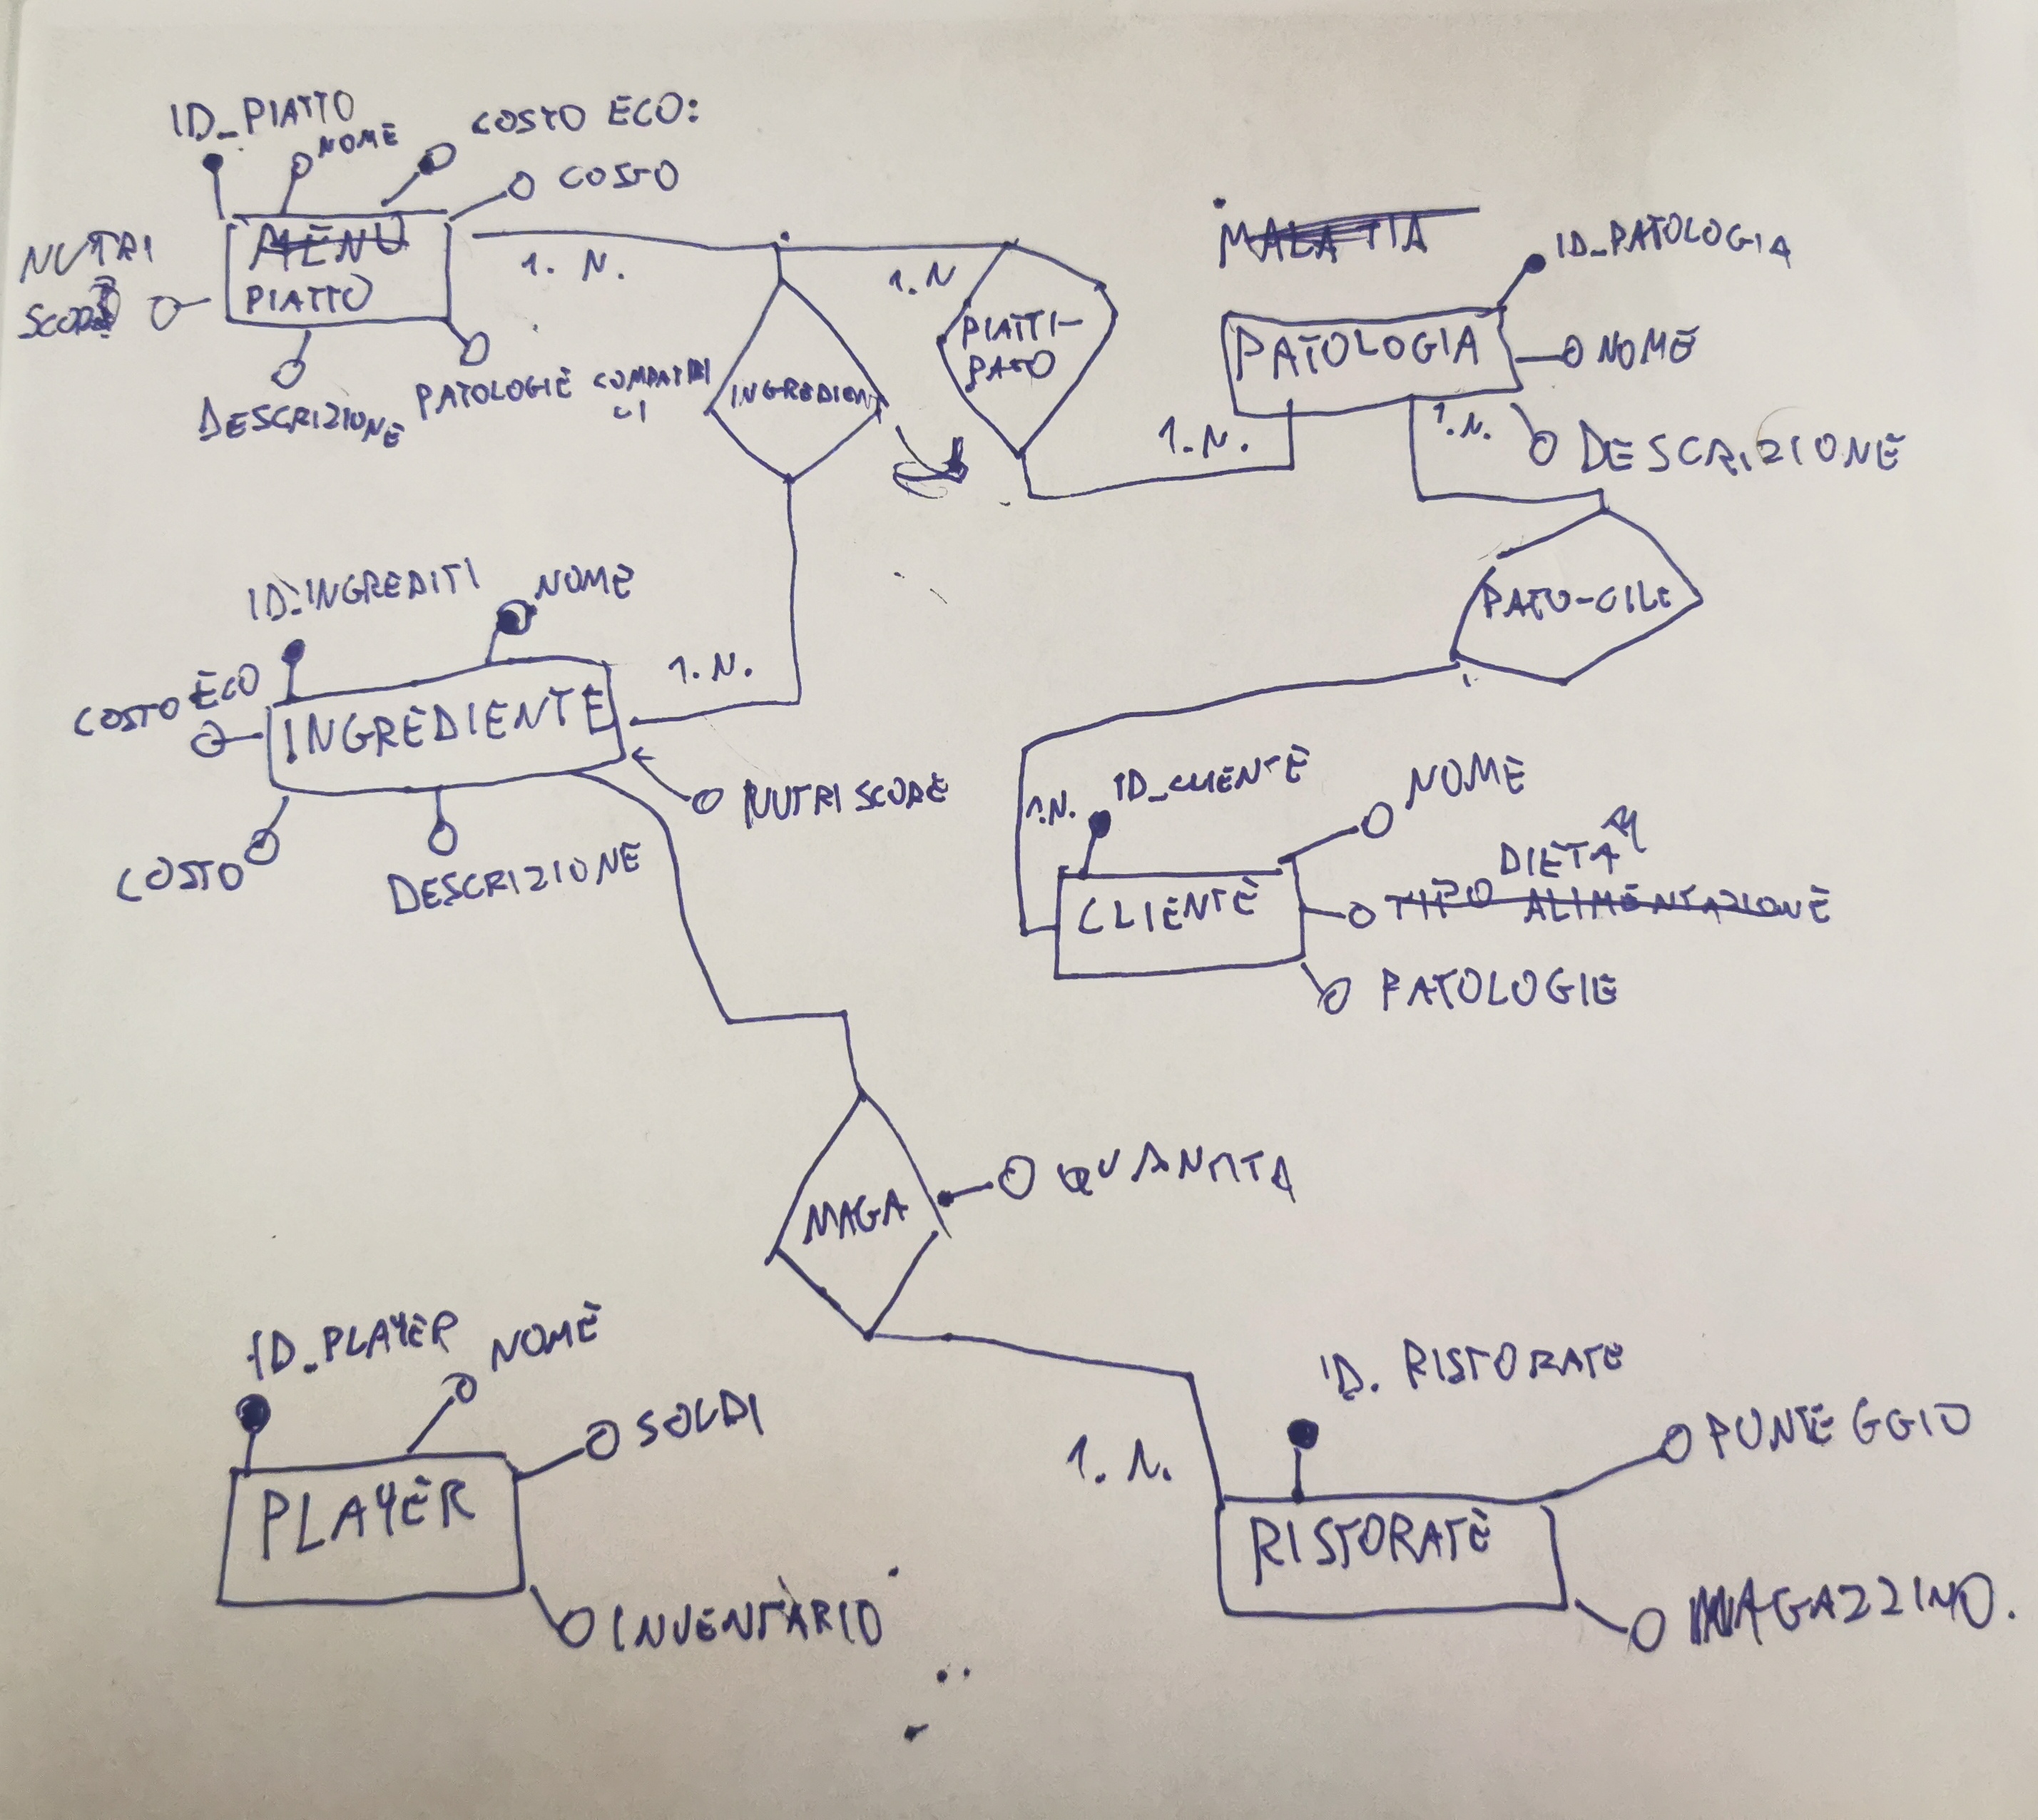 ID_PIATTO
NOME
COSTO ECO:
COSTO
NUTRI
MENU
PIATTO
DESCRIZIONE
PATOLOGIE COMPATIBI
LI
1. N.
1. N
INGREDIENTI
PIATTI-
PATO
MALATTIA
ID_PATOLOGIA
PATOLOGIA
NOME
DESCRIZIONE
1. N.
1. N.
PATO-CILE
ID_INGREDITI
NOME
COSTO ECO
INGREDIENTE
1. N.
NUTRI SCORE
COSTO
DESCRIZIONE
1.N.
ID_CLIENTE
NOME
DIETA
TIPO ALIMENTAZIONE
CLIENTE
PATOLOGIE
MAGA
QUANTITA
ID_PLAYER
NOME
SOLDI
PLAYER
INVENTARIO
1. N.
ID. RISTORATE
PUNTEGGIO
RISTORATE
MAGAZZINO.